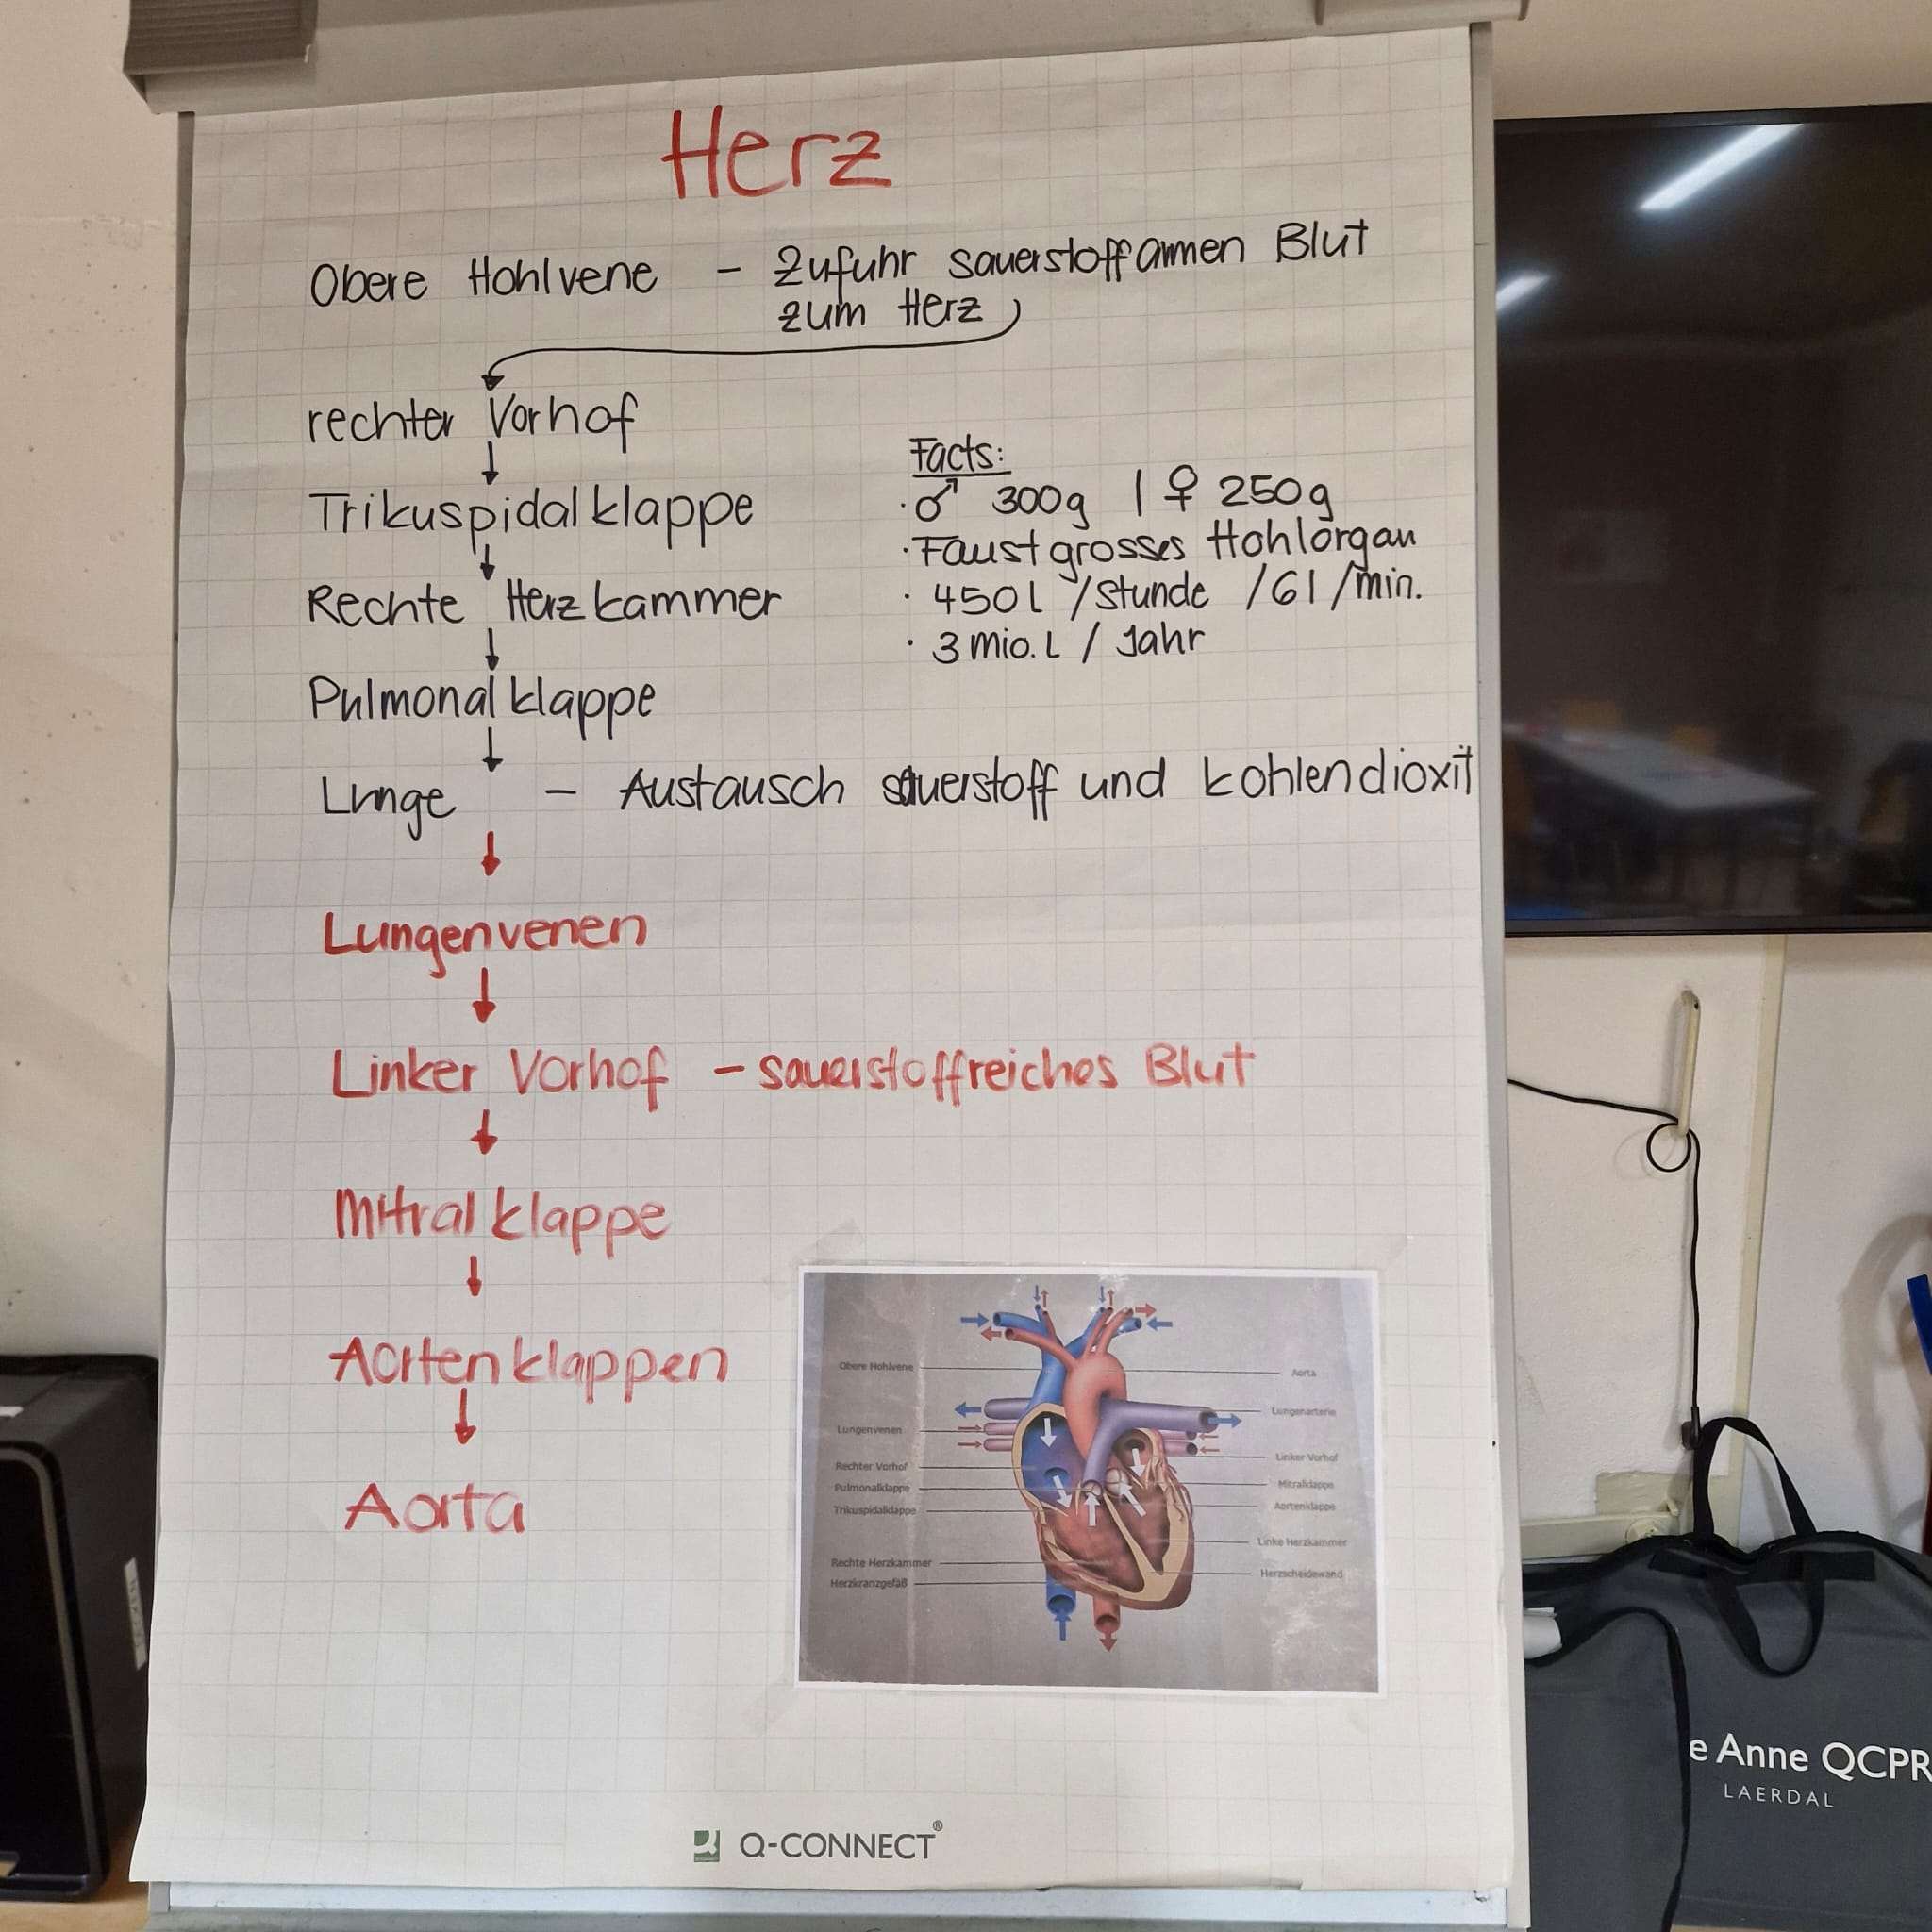 Herz
Obere Hohlvene - Zufuhr sauerstoffarmen Blut
zum Herz
rechter Vorhof
Trikuspidalklappe
Rechte Herzkammer
Pulmonalklappe
Lunge - Austausch sauerstoff und kohlendioxit
Facts:
· ♂ 300g | ♀ 250g
· Faustgrosses Hohlorgan
· 450l /Stunde /6l /min.
· 3 mio. L / Jahr
Lungenvenen
Linker Vorhof - sauerstoffreiches Blut
Mitralklappe
Aortenklappen
Aorta
Obere Hohlvene
Lungenvenen
Rechter Vorhof
Pulmonalklappe
Trikuspidalklappe
Rechte Herzkammer
Herzkranzgefäß
Aorta
Lungenarterie
Linker Vorhof
Mitralklappe
Aortenklappe
Linke Herzkammer
Herzscheidewand
Q-CONNECT®
e Anne QCPR
LAERDAL